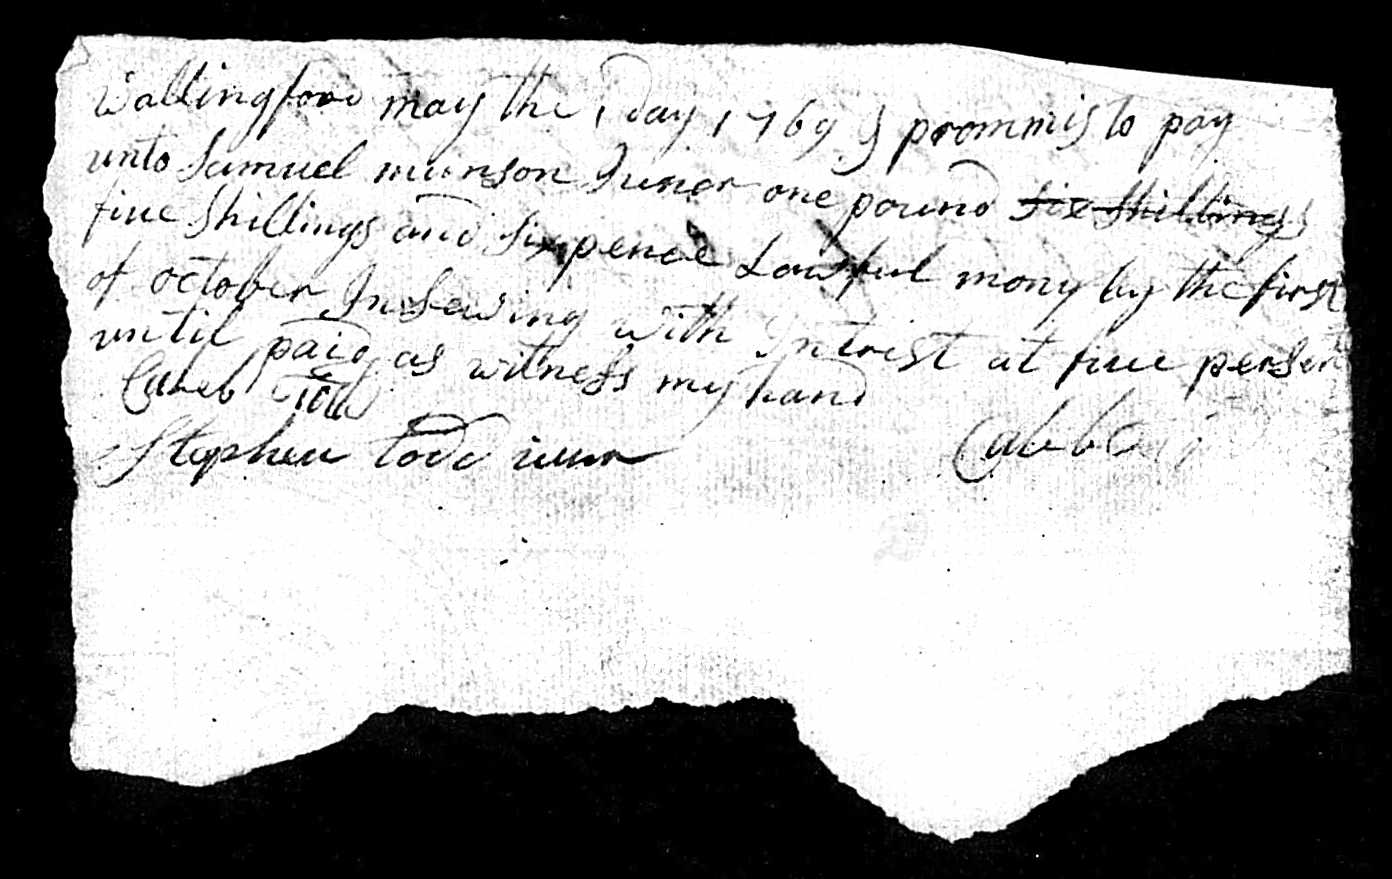 Wallingford may the 1 day 1769 I prommis to pay
unto Samuel munson Juner one pound six shillings
five shillings and sixpence Lawful mony by the first
of october In sewing with Intrist at five persent
until paid as witness my hand
Caleb Todd
Stephen todd iunr
Caleb